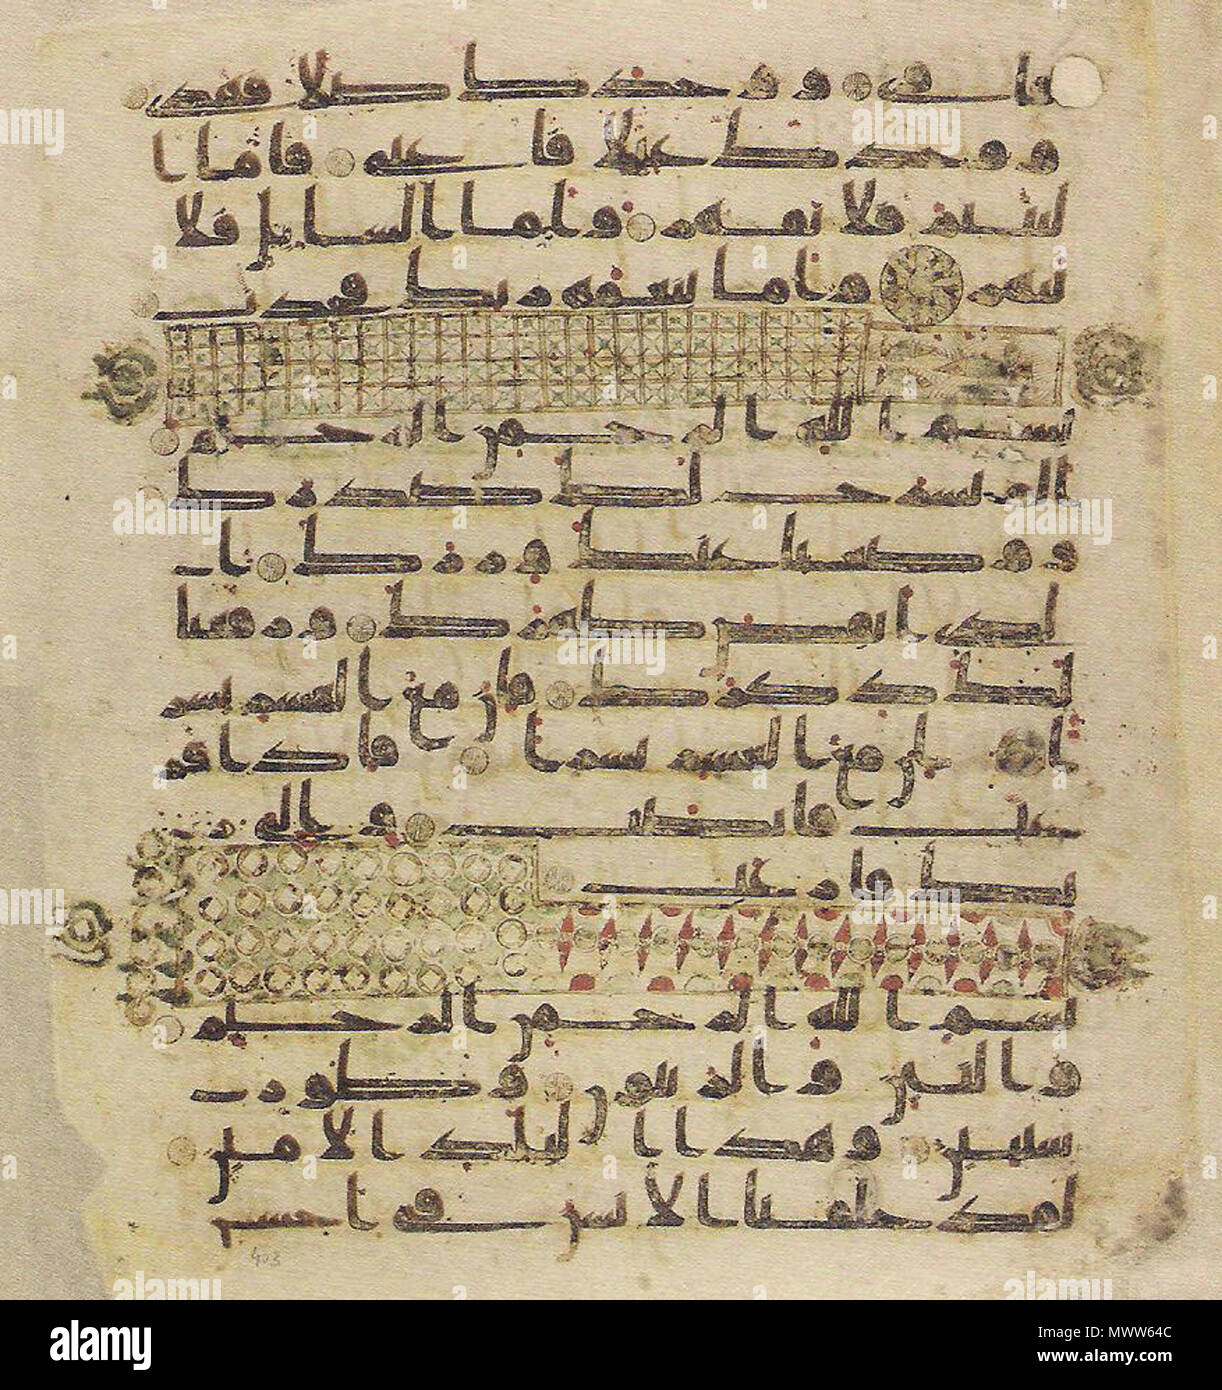 فاوى ووجدك ضالا فهدى
ووجدك عئلا فاغنى فاما ا
ليتيم فلا تقهر واما السايل فلا
تنهر واما بنعمة ربك فحدث
بسم الله الرحمن الرحيم
الم نشرح لك صدرك
ووضعنا عنك وزرك ا
لذى انقض ظهرك ورفعنا
لك ذكرك فان مع العسر يسر
ا ان مع العسر يسرا فاذا فر
غت فانصب والى ر
بك فارغب
بسم الله الرحمن الرحيم
والتين والزيتون وطور
سينين وهذا البلد الامين
لقد خلقنا الانسن فى احسن
403
alamy
Image ID: MWW64C
www.alamy.com